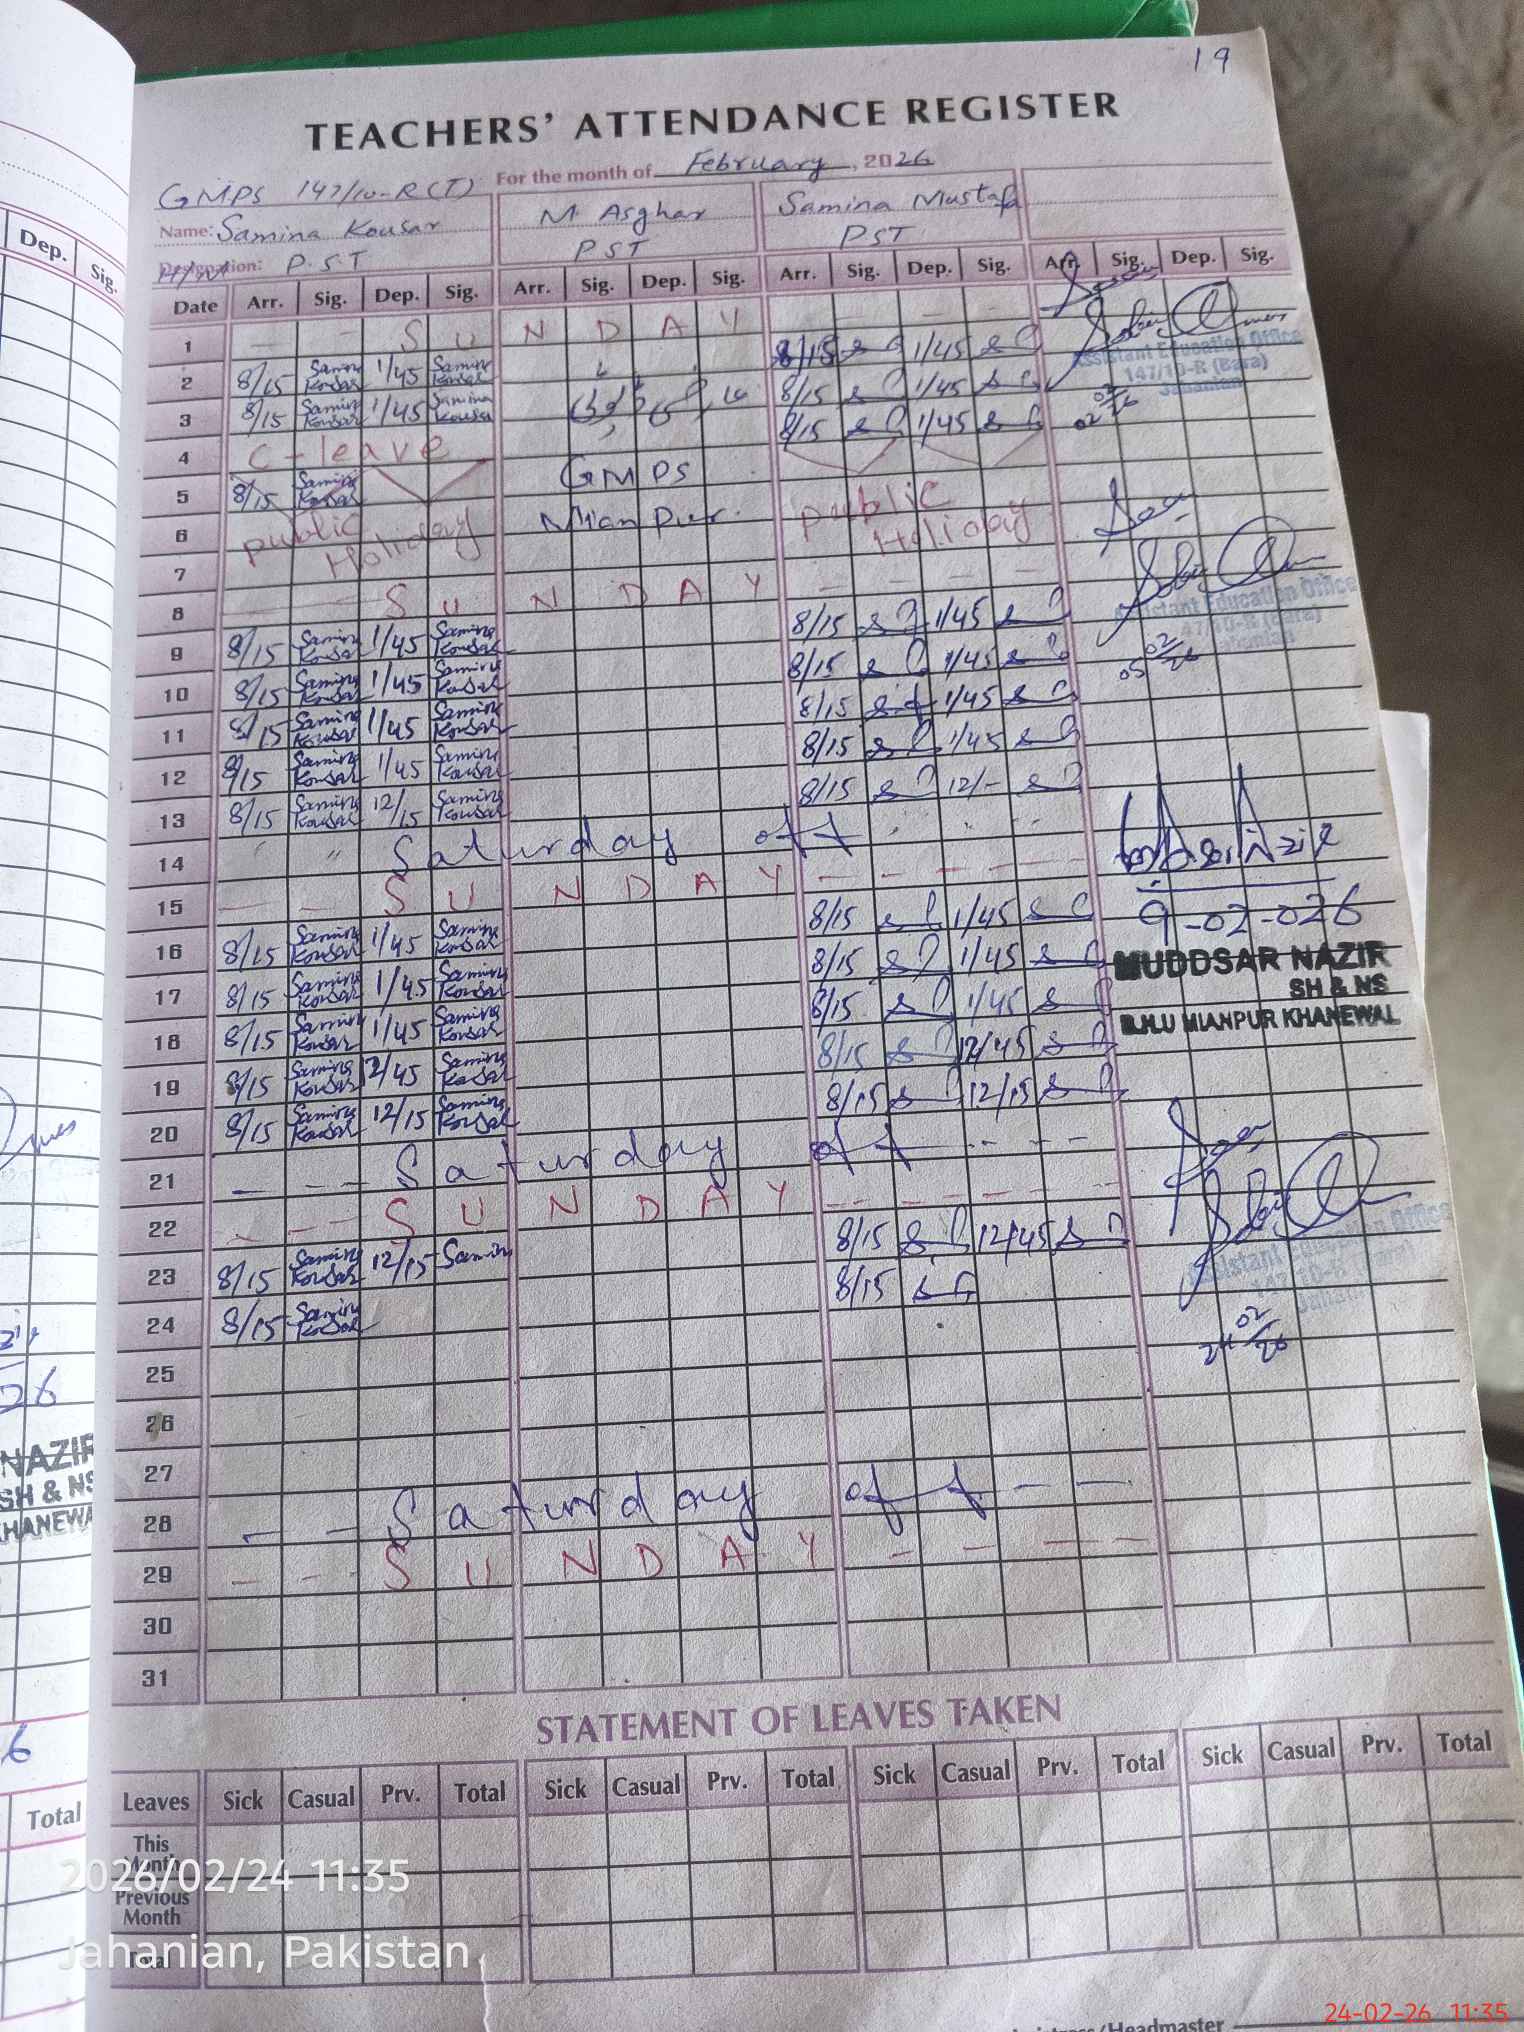 19
TEACHERS' ATTENDANCE REGISTER
For the month of February, 2026
GMPS 147/10-R(T)
Name: Samina Kousar M. Asghar Samina Mustafa
Designation: P.S.T PST PST
Date Arr. Sig. Dep. Sig. Arr. Sig. Dep. Sig. Arr. Sig. Dep. Sig. Arr. Sig. Dep. Sig.
1 SUNDAY
2 8/15 Samina Kousar 1/45 Samina Kousar 8/15 1/45
3 8/15 Samina Kousar 1/45 Samina Kousar 8/15 1/45
4 C-leave 8/15 1/45
5 8/15 Samina Kousar GMPS
6 public Holiday Mian pur public Holiday
7
8 SUNDAY
9 8/15 Samina Kousar 1/45 Samina Kousar 8/15 1/45
10 8/15 Samina Kousar 1/45 Samina Kousar 8/15 1/45
11 8/15 Samina Kousar 1/45 Samina Kousar 8/15 1/45
12 8/15 Samina Kousar 1/45 Samina Kousar 8/15 1/45
13 8/15 Samina Kousar 12/15 Samina Kousar 8/15 12/-
14 Saturday off
15 SUNDAY
16 8/15 Samina Kousar 1/45 Samina Kousar 8/15 1/45
17 8/15 Samina Kousar 1/45 Samina Kousar 8/15 1/45
18 8/15 Samina Kousar 1/45 Samina Kousar 8/15 1/45
19 8/15 Samina Kousar 12/45 Samina Kousar 8/15 12/45
20 8/15 Samina Kousar 12/15 Samina Kousar 8/15 12/15
21 Saturday off
22 SUNDAY
23 8/15 Samina Kousar 12/15 Samina 8/15 12/45
24 8/15 Samina Kousar 8/15
25
26
27
28 Saturday off
29 SUNDAY
30
31
Assistant Education Office
147/10-R (Bara)
Jahanian
02
02/26
Assistant Education Office
147/10-R (Bara)
Jahanian
05 02/26
9-02-026
MUDDSAR NAZIR
SH & NS
B.H.U MIANPUR KHANEWAL
Assistant Education Office
147/10-R (Bara)
Jahanian
24 02/26
STATEMENT OF LEAVES TAKEN
Leaves Sick Casual Prv. Total Sick Casual Prv. Total Sick Casual Prv. Total Sick Casual Prv. Total
This Month
Previous Month
Total
Headmaster
2026/02/24 11:35
Jahanian, Pakistan
24-02-26 11:35
Dep. Sig.
26
NAZIR
SH & NS
KHANEWA
6
Total